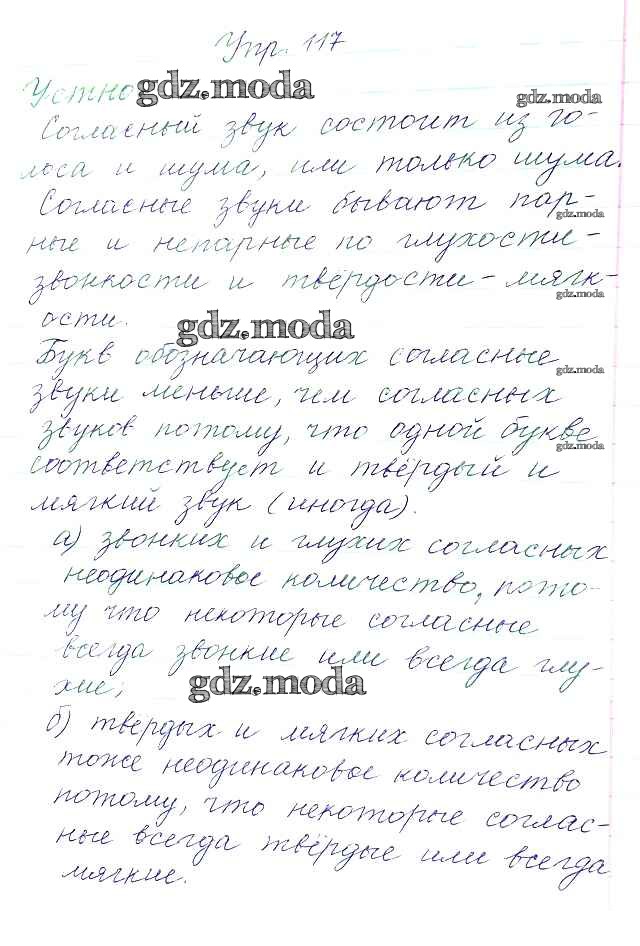 Упр. 117
Устно gdz.moda
gdz.moda
Согласный звук состоит из го-
лоса и шума, или только шума.
Согласные звуки бывают пар-
gdz.moda
ные и непарные по глухости-
звонкости и твёрдости-мягк-
gdz.moda
ости.
gdz.moda
Букв обозначающих согласные
gdz.moda
звуки меньше, чем согласных
звуков потому, что одной букве
gdz.moda
соответствует и твёрдый и
мягкий звук (иногда).
а) звонких и глухих согласных
неодинаковое количество, пото-
му что некоторые согласные
всегда звонкие или всегда глу-
хие;
gdz.moda
б) твердых и мягких согласных
тоже неодинаковое количество
потому, что некоторые соглас-
ные всегда твёрдые или всегда
мягкие.